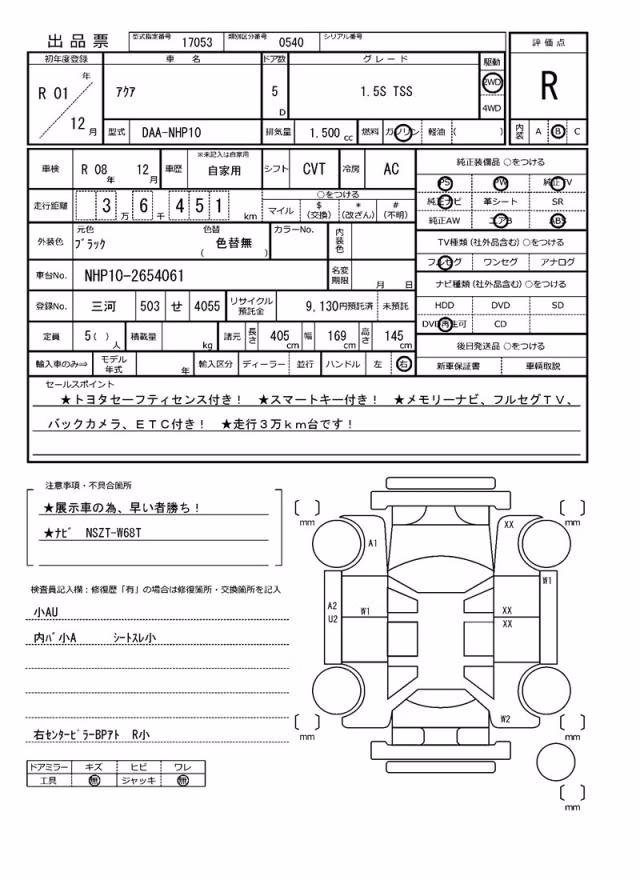 出品票 型式指定番号 17053 類別区分番号 0540 シリアル番号
評価点
R
内装 A B C
初年度登録 車名 ドア数 グレード 駆動
R 01 年 12 月 アクア 5 D 1.5S TSS 2WD 4WD
型式 DAA-NHP10 排気量 1.500 cc 燃料 ガソリン 軽油 ( )
車検 R 08 年 12 月 車歴 ※未記入は自家用 自家用 シフト CVT 冷房 AC
走行距離 3 万 6 千 4 5 1 km ○をつける
マイル $(交換) *(改ざん) #(不明)
外装色 元色 ブラック 色替 ( 色替無 ) カラーNo. 内装色
車台No. NHP10-2654061 名変期限 月 日
登録No. 三河 503 せ 4055 リサイクル預託金 9,130円預託済 未預託
定員 5( )人 積載量 kg 諸元 長さ 405 cm 幅 169 cm 高さ 145 cm
輸入車のみ⇒ モデル年式 年 輸入区分 ディーラー 並行 ハンドル 左 右
純正装備品 ○をつける
PS PW 純正TV
純正ナビ 革シート SR
純正AW エアB ABS
TV種類(社外品含む)○をつける
フルセグ ワンセグ アナログ
ナビ種類(社外品含む)○をつける
HDD DVD SD
DVD再生可 CD
後日発送品 ○をつける
新車保証書 車輌取説
セールスポイント
★トヨタセーフティセンス付き! ★スマートキー付き! ★メモリーナビ、フルセグTV、
バックカメラ、ETC付き! ★走行3万km台です!
注意事項・不具合箇所
★展示車の為、早い者勝ち!
★ナビ NSZT-W68T
検査員記入欄:修復歴「有」の場合は修復箇所・交換箇所を記入
小AU
内バ小A シートスレ小
右センターピラーBPアト R小
ドアミラー キズ ヒビ ワレ
工具 無 ジャッキ 無
mm mm
A1 XX
W1
A2 U2 W1 XX
XX
W2
mm mm
mm